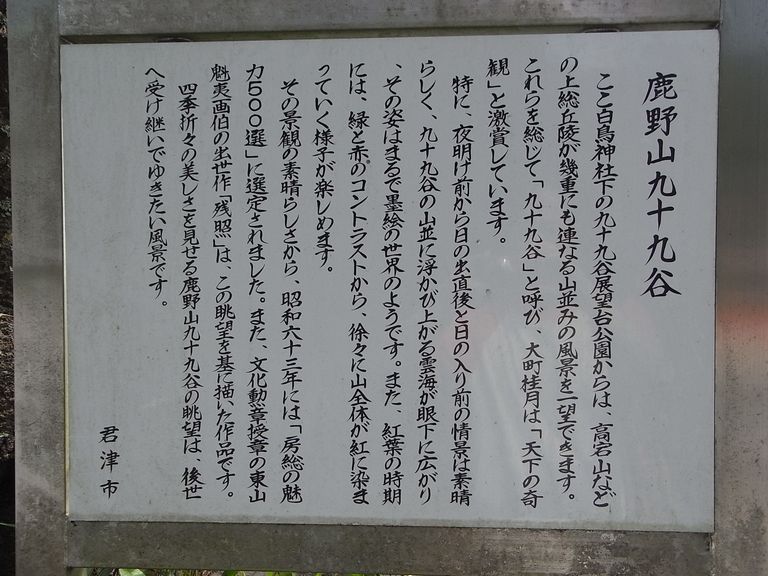 鹿野山九十九谷
ここ白鳥神社下の九十九谷展望台公園からは、高宕山など
の上総丘陵が幾重にも連なる山並みの風景を一望できます。
これらを総じて「九十九谷」と呼び、大町桂月は「天下の奇
観」と激賞しています。
特に、夜明け前から日の出直後と日の入り前の情景は素晴
らしく、九十九谷の山並に浮かび上がる雲海が眼下に広がり
、その姿はまるで墨絵の世界のようです。また、紅葉の時期
には、緑と赤のコントラストから、徐々に山全体が紅に染ま
っていく様子が楽しめます。
その景観の素晴らしさから、昭和六十三年には「房総の魅
力500選」に選定されました。また、文化勲章授章の東山
魁夷画伯の出世作「残照」は、この眺望を基に描いた作品です。
四季折々の美しさを見せる鹿野山九十九谷の眺望は、後世
へ受け継いでゆきたい風景です。
君津市